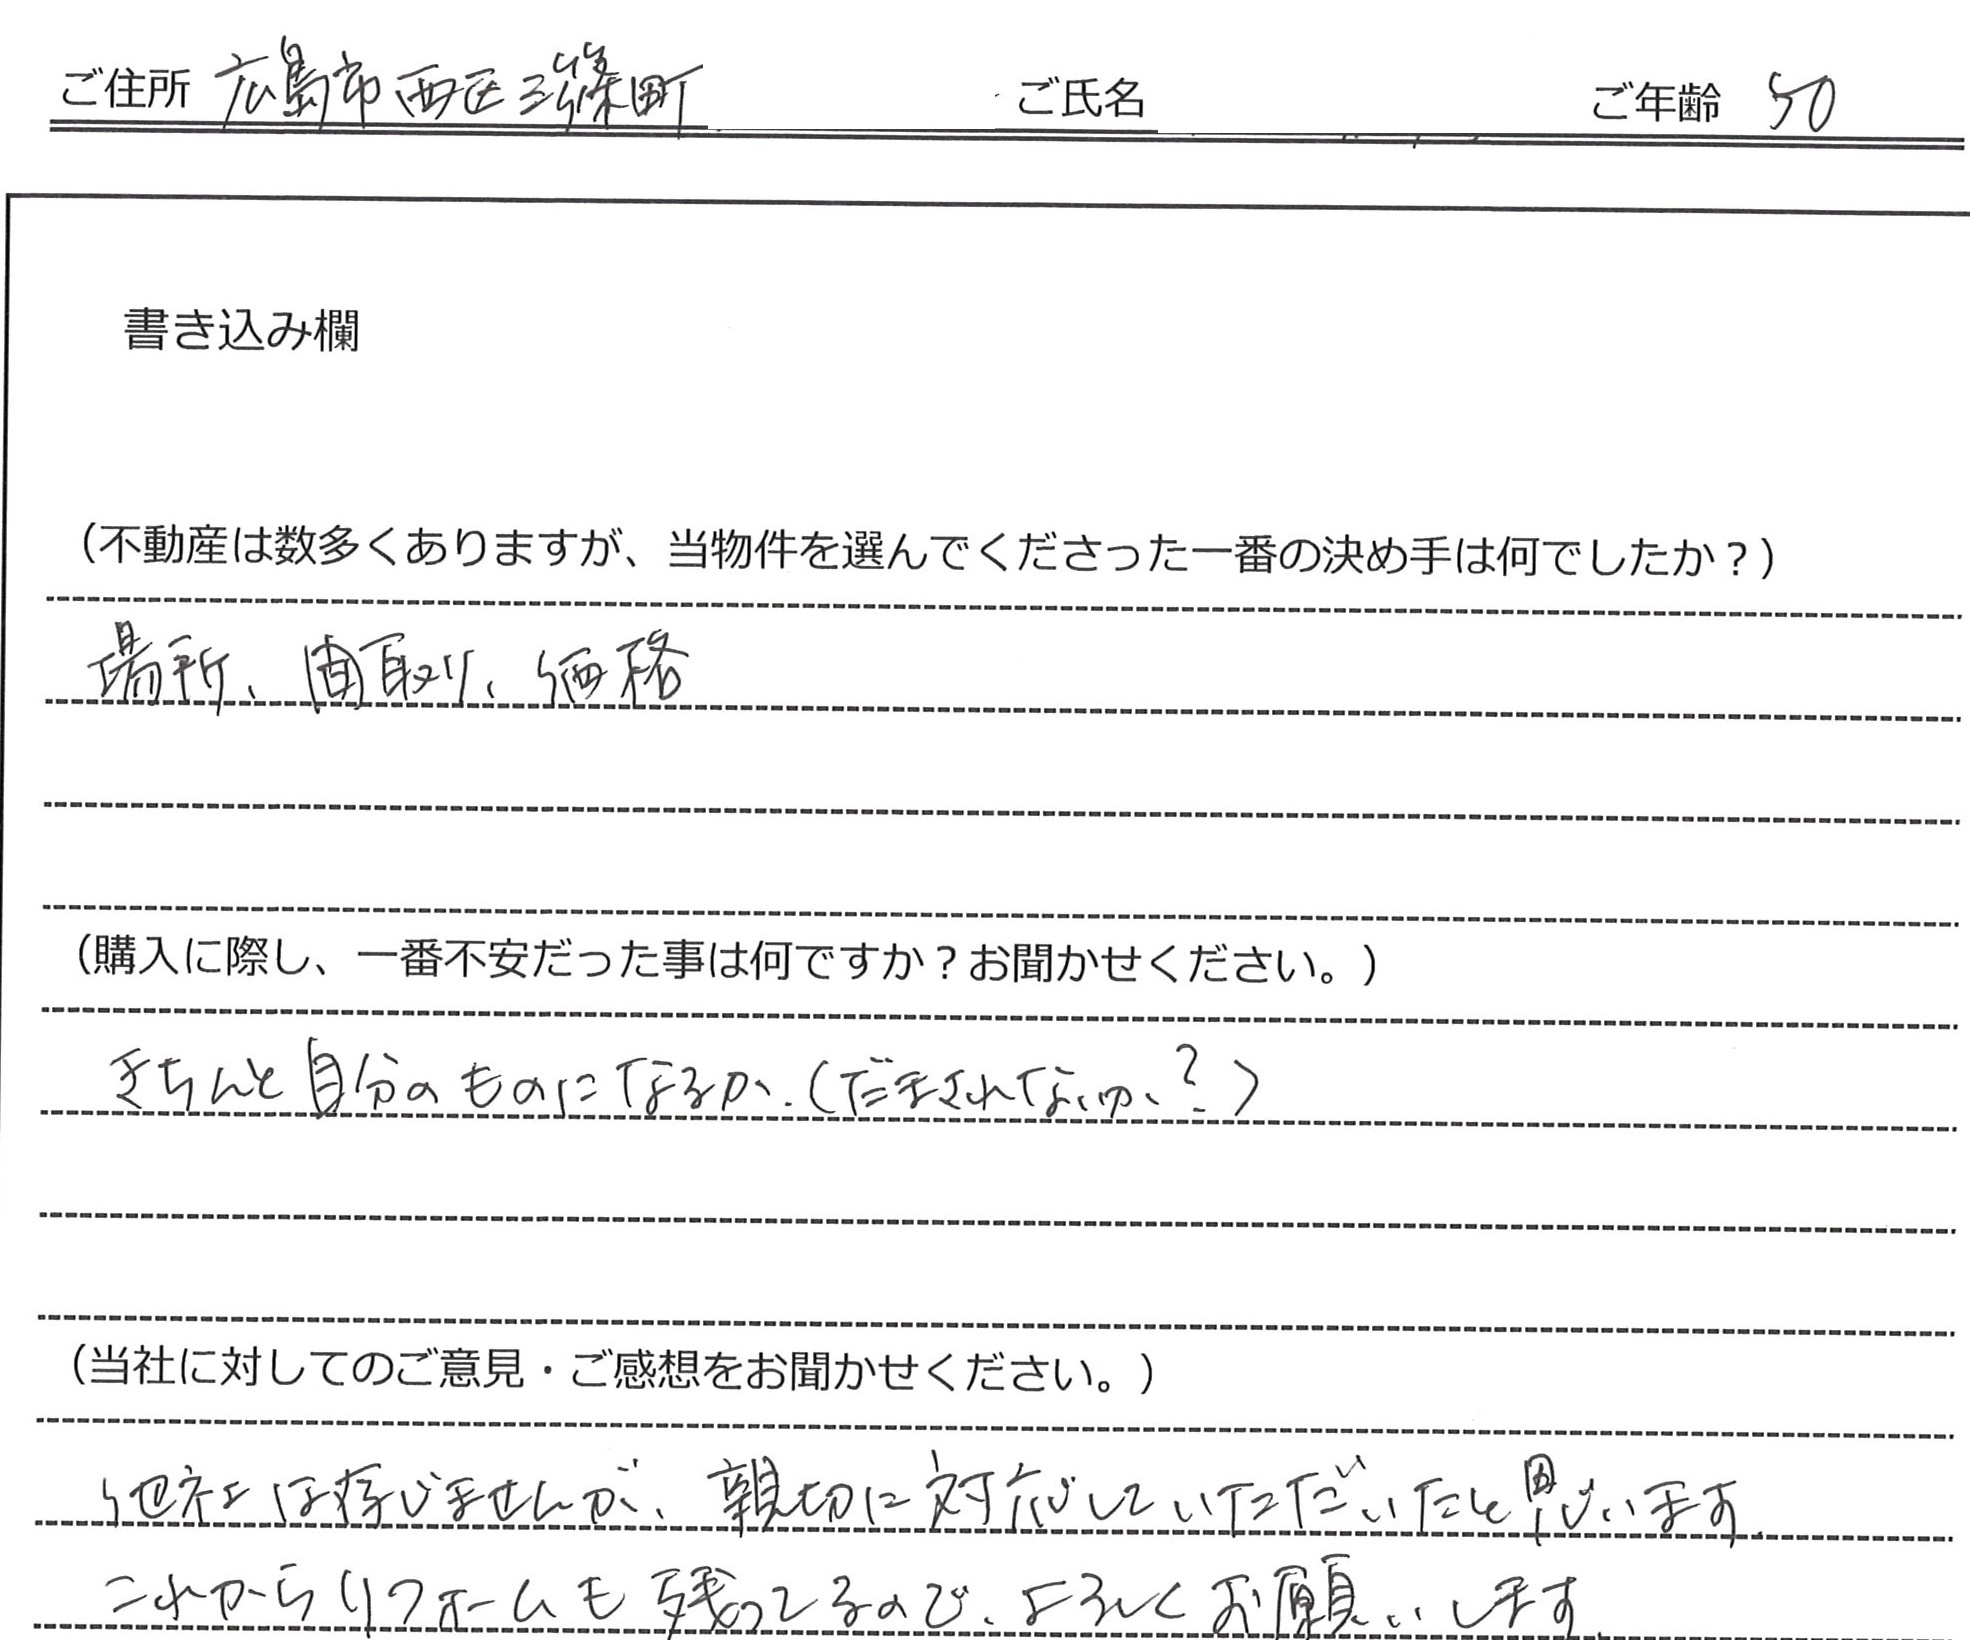 ご住所 広島市西区三篠町 ご氏名 ご年齢 50
書き込み欄
（不動産は数多くありますが、当物件を選んでくださった一番の決め手は何でしたか？）
場所、間取り、価格
（購入に際し、一番不安だった事は何ですか？お聞かせください。）
きちんと自分のものになるか、（だまされないか、？）
（当社に対してのご意見・ご感想をお聞かせください。）
他社は存じませんが、親切に対応していただいたと思います。
これからリフォームも残ってるので、よろしくお願いします。